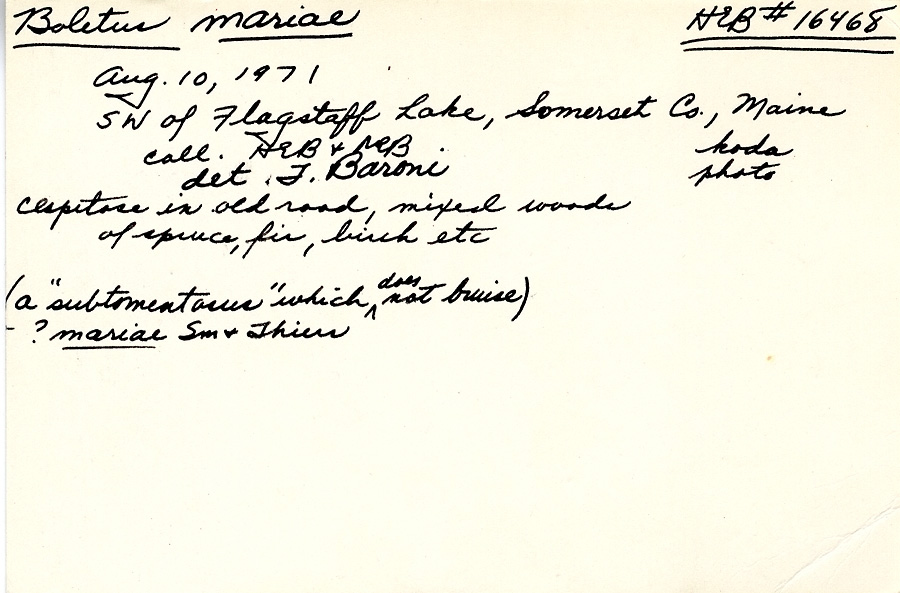 Boletus mariae HEB # 16468
Aug. 10, 1971
SW of Flagstaff Lake, Somerset Co., Maine
coll. HEB & MEB koda
det. T. Baroni photo
cespitose in old road, mixed woods
of spruce, fir, birch etc
(a "subtomentosus" which does not bruise)
- ? mariae Sm & Thiers